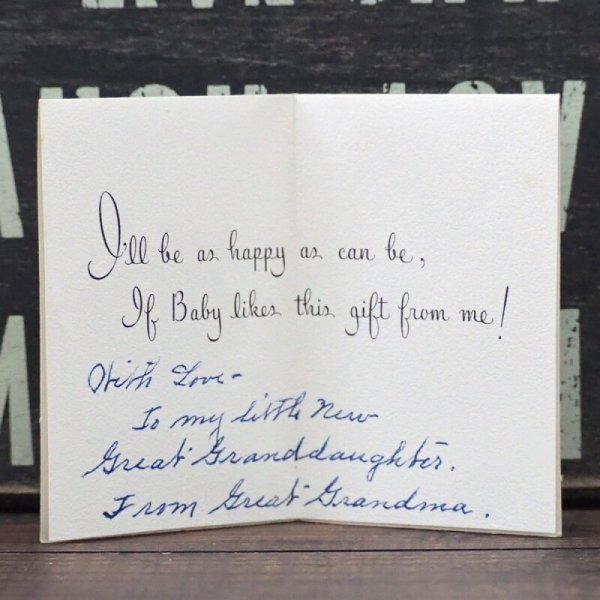 I'll be as happy as can be,
If Baby likes this gift from me!
With Love-
To my little New
Great Granddaughter.
From Great Grandma.